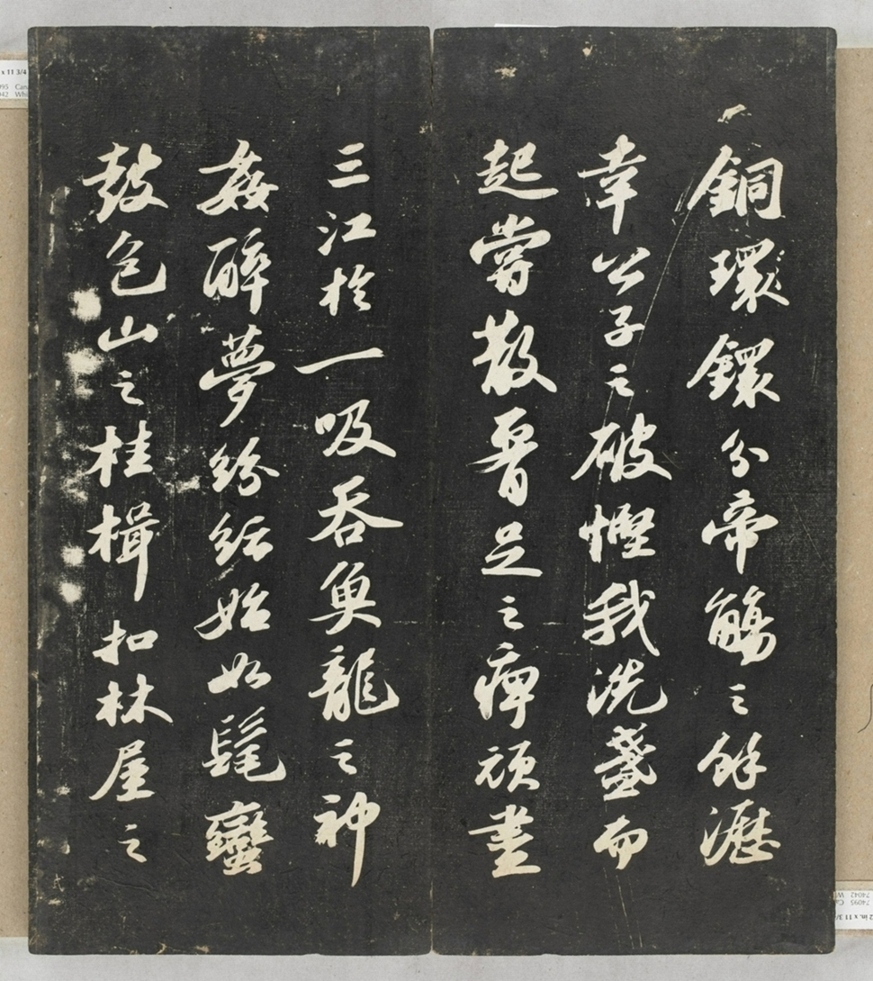 銅環鐶分帝觴之餘瀝
幸公子之破慳我洗盞而
起嘗散腰足之痺頑盡
三江於一吸吞魚龍之神
姦醉夢紛紜始如髦蠻
鼓包山之桂楫扣林屋之
x 11 3/4